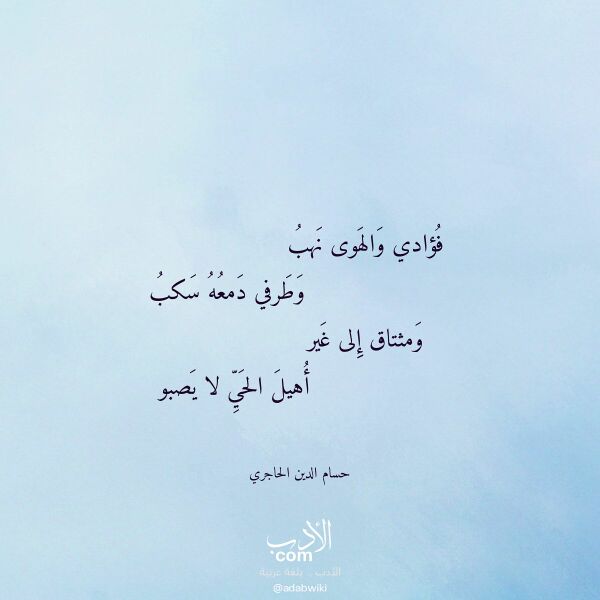 فُؤادي وَالهَوى نَهبُ
وَطَرفي دَمعُهُ سَكبُ
وَمثتاق إِلى غَير
أُهيلَ الحَيِّ لا يَصبو
حسام الدين الحاجري
الأدب
com
الأدب .. بلغة عربية
@adabwiki